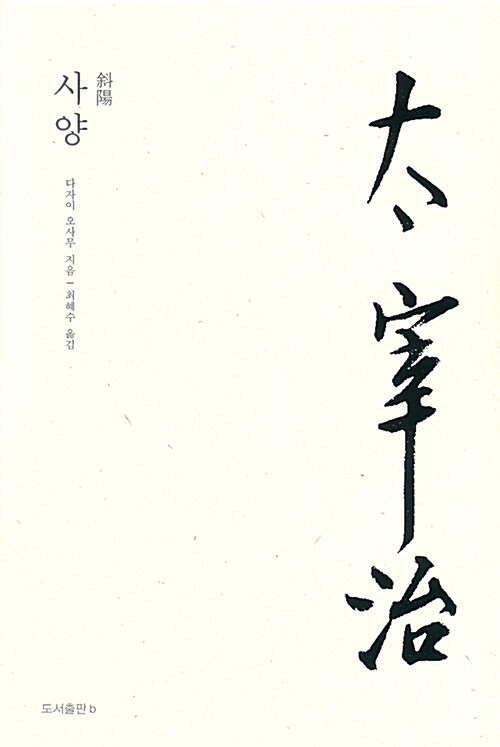 斜陽
사양
다자이 오사무 지음 ─ 최혜수 옮김
太宰治
도서출판 b